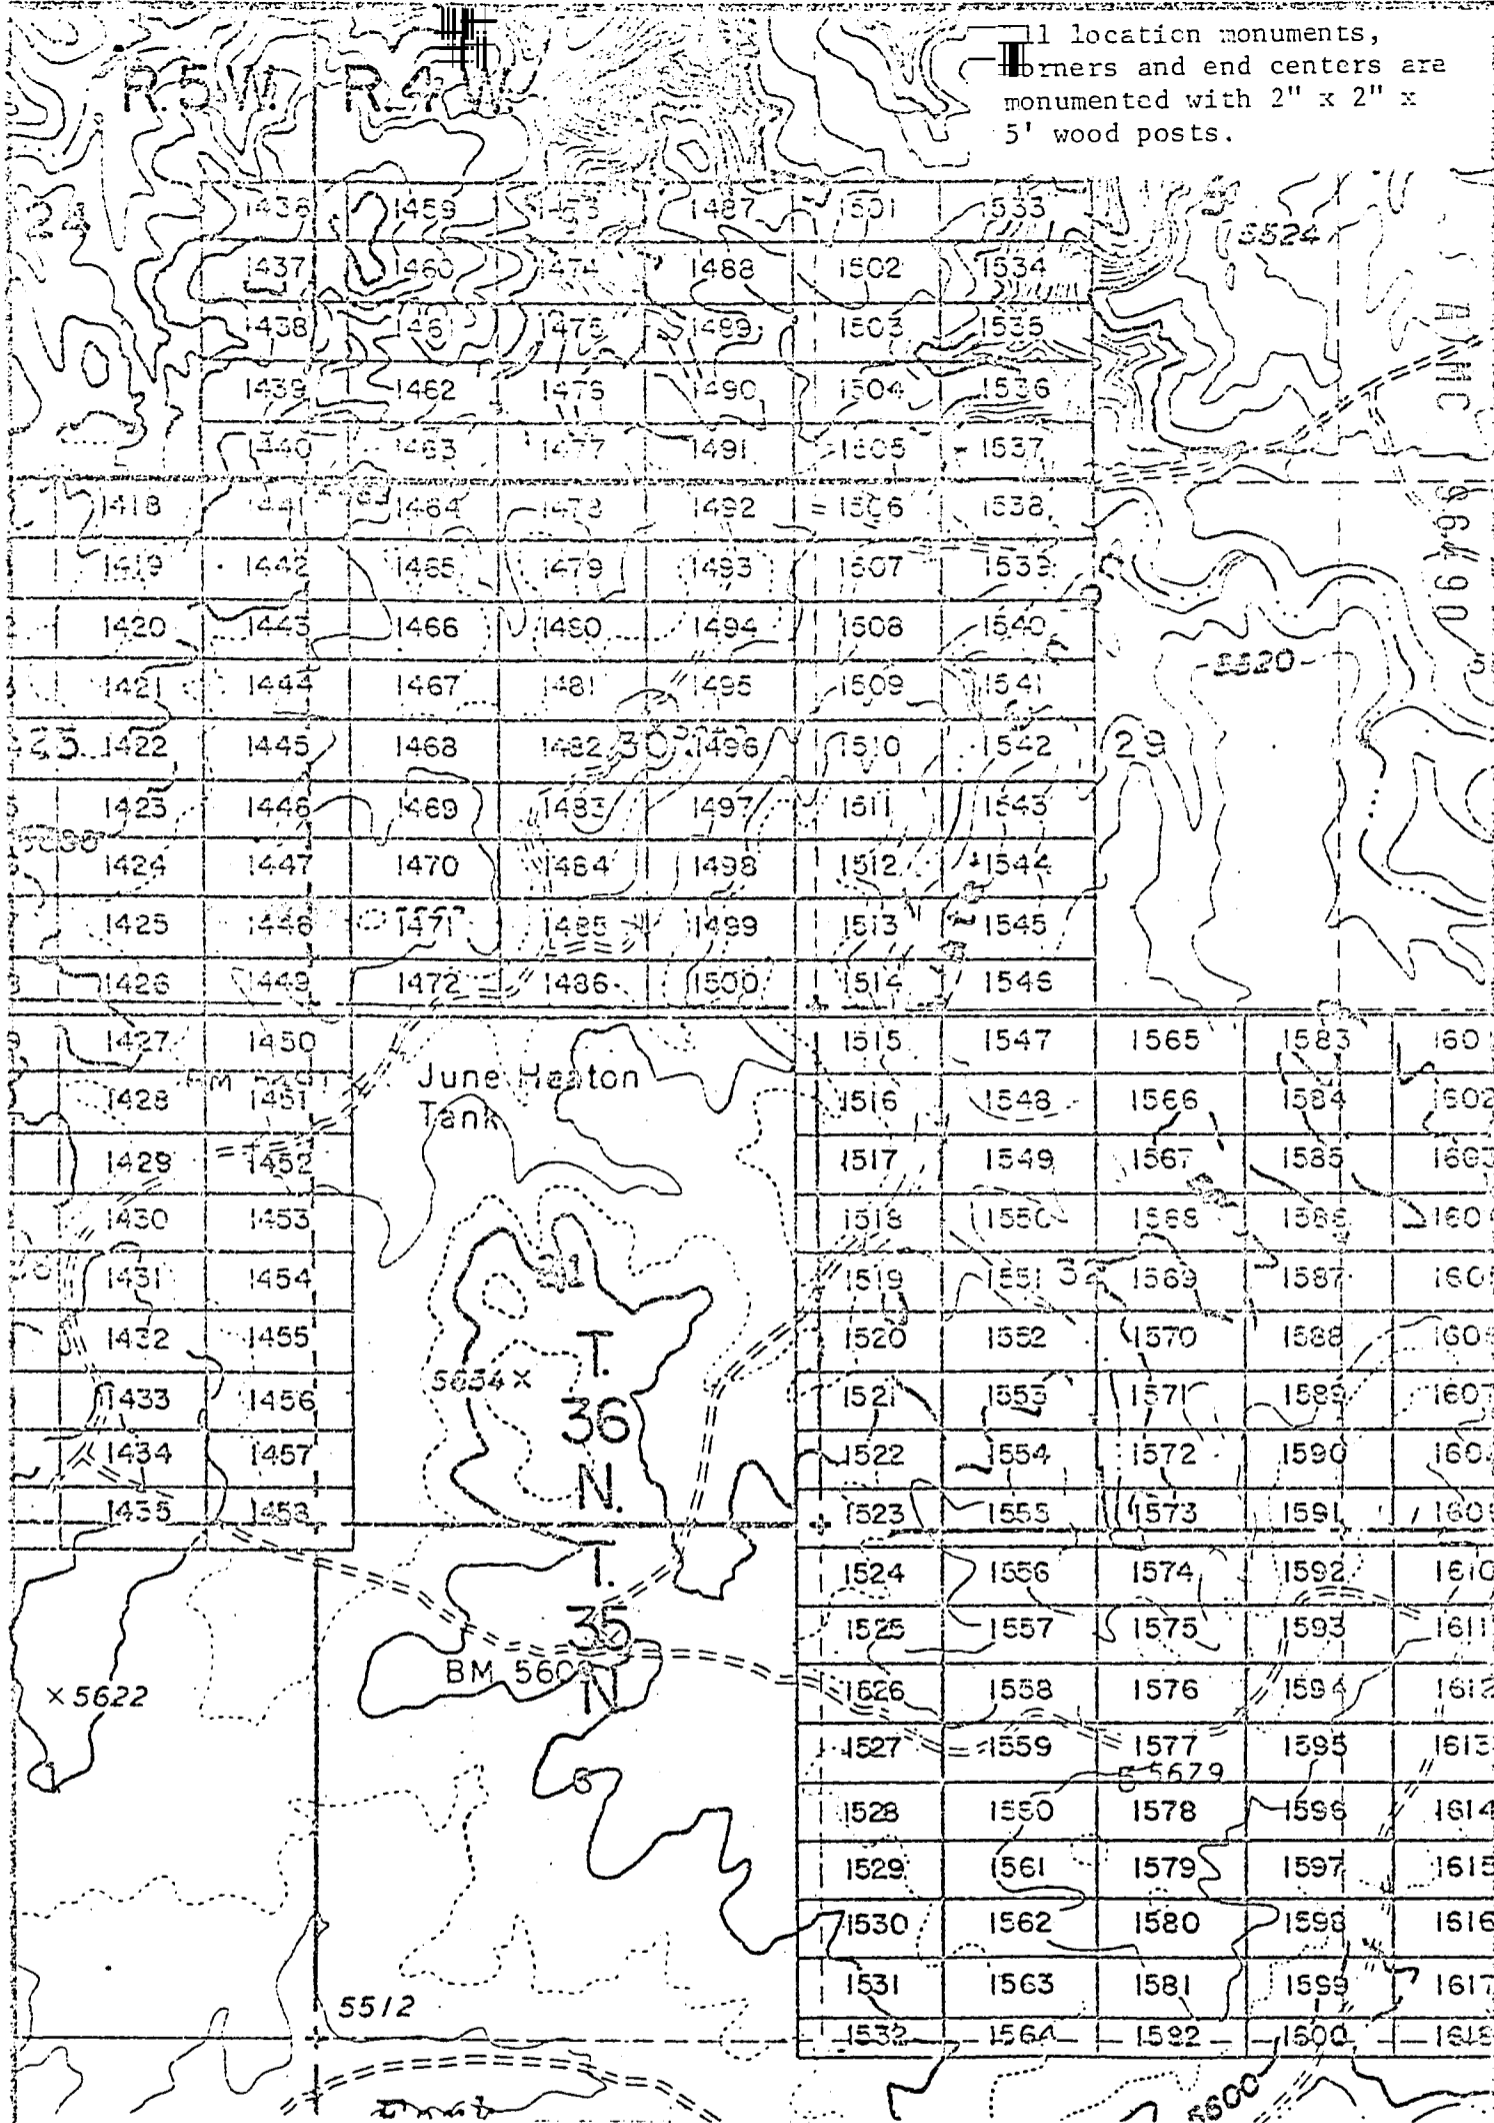 11 location monuments,
orners and end centers are
monumented with 2" x 2" x
5' wood posts.
R.5 W. R.4 W.
24
1438 1459 1487 1501 1533
5524
1437 1460 1474 1488 1502 1534
1438 1461 1475 1489 1503 1535
AMC
1439 1462 1476 1490 1504 1536
1440 1463 1477 1491 1505 1537
1418 1441 1464 1478 1492 1506 1538
96490
1419 1442 1465 1479 1493 1507 1539
1420 1443 1466 1480 1494 1508 1540
5520
1421 1444 1467 1481 1495 1509 1541
1422 1445 1468 1482 30 1496 1510 1542 29
1423 1446 1469 1483 1497 1511 1543
1424 1447 1470 1484 1498 1512 1544
1425 1448 1471 1485 1499 1513 1545
1426 1449 1472 1486 1500 1514 1546
1427 1450 1515 1547 1565 1583 160
June Heaton
Tank
1428 1451 1516 1548 1566 1584 1602
1429 1452 1517 1549 1567 1585 1603
1430 1453 1518 1550 1568 1586 160
31
1431 1454 1519 1551 32 1569 1587 160
1432 1455 1520 1552 1570 1588 160
T.
5634 ×
1433 1456 1521 1553 1571 1589 1607
36
1434 1457 1522 1554 1572 1590 160
N.
1435 1458 1523 1555 1573 1591 1609
T.
1524 1556 1574 1592 1610
35
1525 1557 1575 1593 1611
BM 560
N
× 5622
1526 1558 1576 1594 1612
1527 1559 1577 1595 1613
5679
6
1528 1560 1578 1596 1614
1529 1561 1579 1597 1615
1530 1562 1580 1598 1616
1531 1563 1581 1599 1617
5512
1532 1564 1582 1600 1618
5600